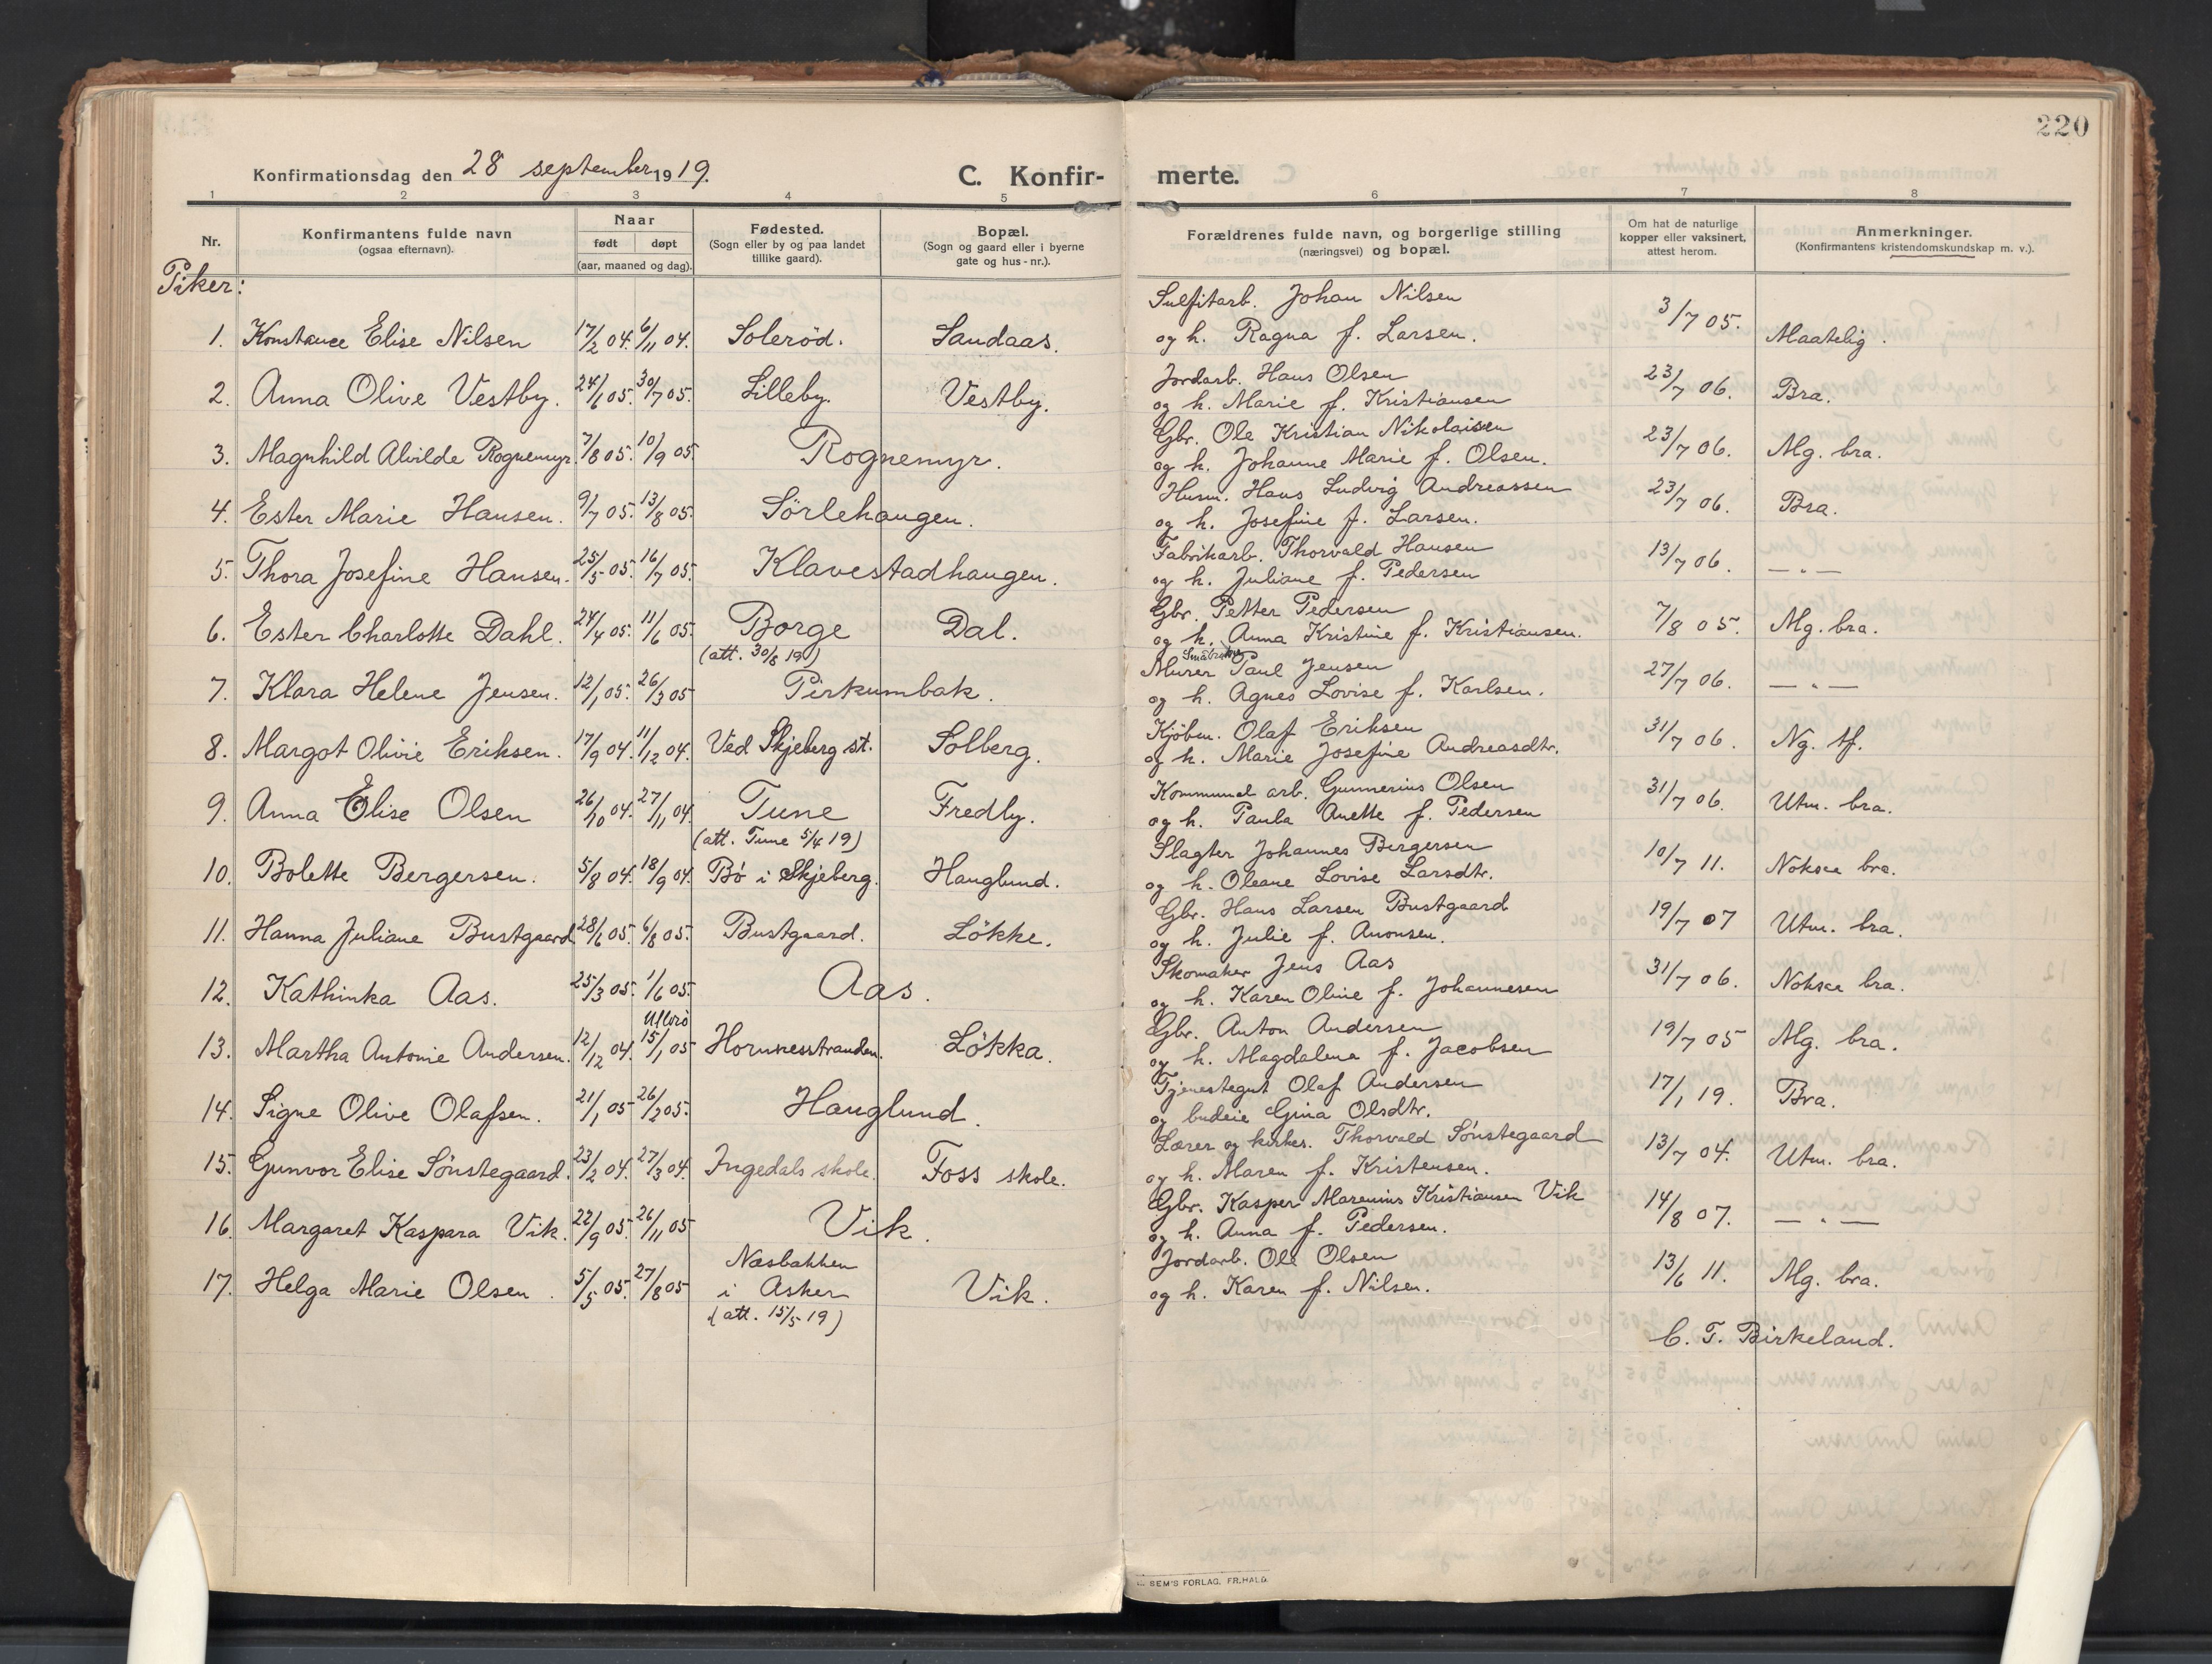 220
Konfirmationsdag den 28 september 1919.
C. Konfir- merte.
1 2 3 4 5 6 7 8
Nr.
Konfirmantens fulde navn
(ogsaa efternavn).
Naar
født døpt
(aar, maaned og dag).
Fødested.
(Sogn eller by og paa landet
tillike gaard).
Bopæl.
(Sogn og gaard eller i byerne
gate og hus-nr.).
Forældrenes fulde navn, og borgerlige stilling
(næringsvei) og bopæl.
Om hat de naturlige
kopper eller vaksinert,
attest herom.
Anmerkninger.
(Konfirmantens kristendomskundskap m. v.).
Piker:
Sulfitarb. Johan Nilsen
1. Konstance Elise Nilsen 17/2 04. 6/11 04. Solerød. Sandaas. og h. Ragna f. Larsen. 3/7 05. Maatelig.
Jordarb. Hans Olsen
2. Anna Olive Vestby. 24/6 05. 30/7 05. Lilleby. Vestby. og h. Marie f. Kristiansen 23/7 06. Bra.
Gbr. Ole Kristian Nikolaisen
3. Magnhild Alvilde Rognemyr. 7/8 05. 10/9 05. Rognemyr. og h. Johanne Marie f. Olsen. 23/7 06. Mg. bra.
Husm. Hans Ludvig Andreassen
4. Ester Marie Hansen. 9/7 05. 13/8 05. Sörlehaugen. og h. Josefine f. Larsen. 23/7 06. Bra.
Fabrikarb. Thorvald Hansen
5. Thora Josefine Hansen. 25/5 05. 16/7 05. Klavestadhaugen. og h. Juliane f. Pedersen 13/7 06. — " —
Gbr. Petter Pedersen
6. Ester Charlotte Dahl. 24/4 05. 11/6 05. Borge Dal. og h. Anna Kristine f. Kristiansen. 7/8 05. Mg. bra.
(att. 30/8 19)
Murer Paul Jensen
7. Klara Helene Jensen. 12/1 05. 26/3 05 Pirkumbak. og h. Agnes Lovise f. Karlsen. 27/7 06. — " —
Kjöbm. Olaf Eriksen
8. Margot Olivie Eriksen. 17/9 04. 11/12 04. Ved Skjeberg st. Solberg. og h. Marie Josefine Andreasdtr. 31/7 06. Ng. tf.
Kommunal arb. Gunnerius Olsen
9. Anna Elise Olsen 26/10 04. 27/11 04. Tune Fredly. og h. Paula Anette f. Pedersen 31/7 06. Utm. bra.
(att. Tune 5/4 19)
Slagter Johannes Bergersen
10. Bolette Bergersen. 5/8 04. 18/9 04. Bö i Skjeberg. Hauglund. og h. Oleane Lovise Larsdtr. 10/7 11. Noksaa bra.
Gbr. Hans Larsen Bustgaard
11. Hanna Juliane Bustgaard 28/6 05. 6/8 05. Bustgaard. Lökke. og h. Julie f. Aronsen. 19/7 07 Utm. bra.
Skomaker Jens Aas
12. Kathinka Aas. 25/3 05. 1/6 05. Aas. og h. Karen Oline f. Johannesen 31/7 06. Noksaa bra.
Ullerö
Gbr. Anton Andersen
13. Martha Antonie Andersen. 12/12 04. 15/1 05 Hornnesstranden. Lökka. og h. Magdalena f. Jacobsen 19/7 05 Mg. bra.
Tjenestegut Olaf Andersen
14. Signe Olive Olafsen. 21/1 05 26/2 05. Hauglund. og budeie Gina Olsdtr. 17/1 19. Bra.
Lærer og kirkes. Thorvald Sönstegaard
15. Gunvor Elise Sönstegaard. 23/2 04. 27/3 04. Ingedals skole. Foss skole. og h. Maren f. Kristensen. 13/7 04. Utm. bra.
Gbr. Kasper Marenius Kristiansen Vik
16. Margaret Kaspara Vik. 22/9 05. 26/11 05 Vik. og h. Anna f. Pedersen. 14/8 07. — " —
Næsbakken
Jordarb. Ole Olsen
17. Helga Marie Olsen. 5/5 05. 27/8 05 i Asker Vik. og h. Karen f. Nilsen. 13/6 11. Mg. bra.
(att. 15/5 19)
C. F. Birkeland.
SEM'S FORLAG, FR.HALD.